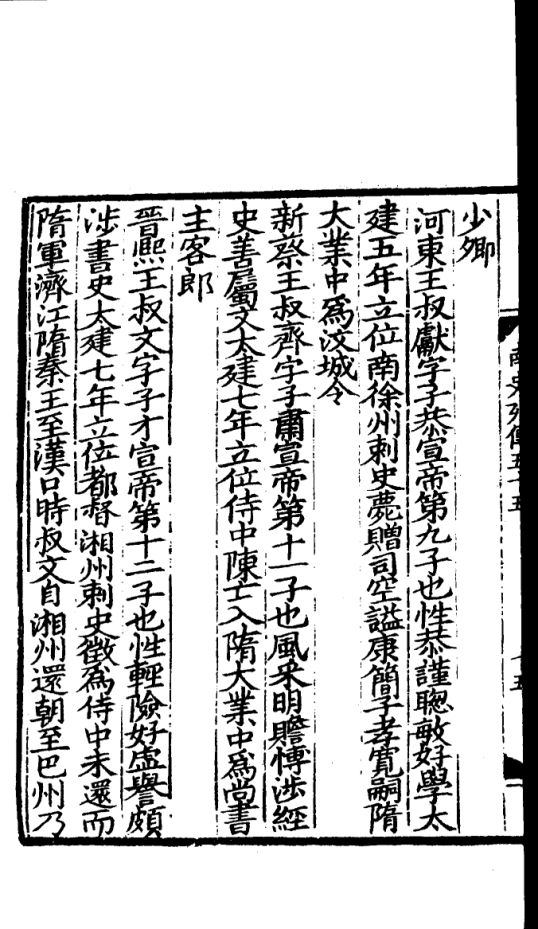 少卿
河東王叔獻字子恭宣帝第九子也性恭謹聦敏好學太
建五年立位南徐州刺史薨贈司空謚康簡子孝寛嗣隋
大業中爲汶城令
新蔡王叔齊字子肅宣帝第十一子也風采明贍博渉經
史善屬文太建七年立位侍中陳亡入隋大業中爲尚書
主客郎
晉熈王叔文字子才宣帝第十二子也性輕險好虛譽頗
渉書史太建七年立位都督湘州刺史徴爲侍中未還而
隋軍濟江隋秦王至漢口時叔文自湘州還朝至巴州乃